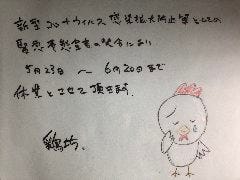 新型コロナウイルス感染拡大防止策としての
緊急事態宣言の発令により
5月23日 〜 6月20日まで
休業とさせて頂きます。
鶏坊